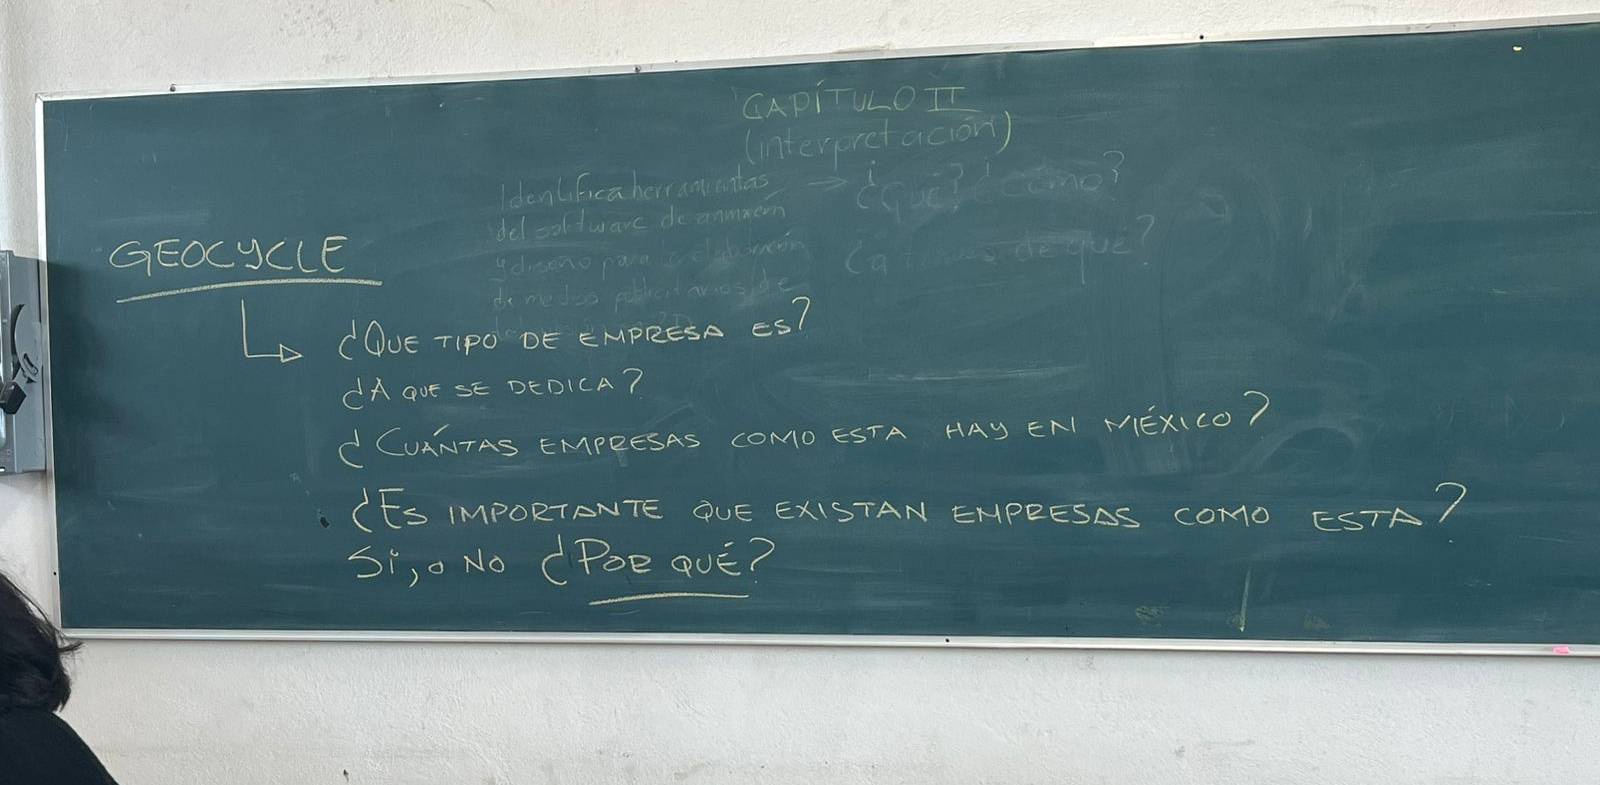 CAPÍTULO II
(interpretación)
Identifica herramientas → ¿Qué? ¿Cómo?
del software de animación
y diseño para la elaboración
de medios publicitarios de
de que?
GEOCYCLE
¿QUE TIPO DE EMPRESA ES?
¿A QUE SE DEDICA?
¿CUÁNTAS EMPRESAS COMO ESTA HAY EN MÉXICO?
¿ES IMPORTANTE QUE EXISTAN EMPRESAS COMO ESTA?
Si, o NO ¿POR QUÉ?